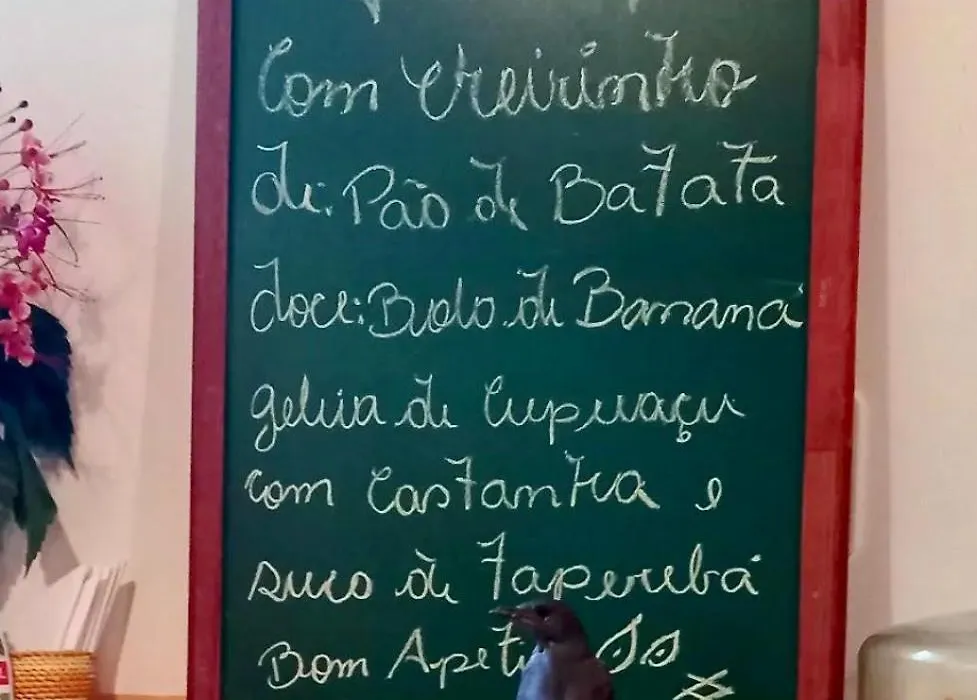 Com Cheirinho
de: Pão de Batata
doce: Bolo de Banana
geleia de Cupuaçu
com Castanha e
suco de Taperebá
Bom